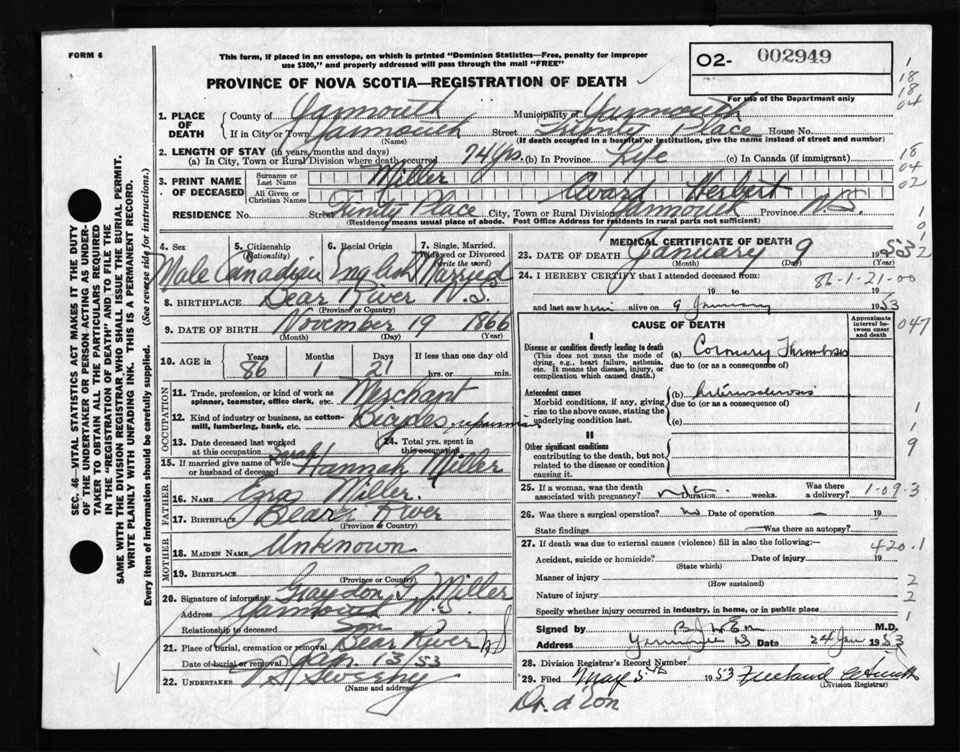 FORM 6
This form, if placed in an envelope, on which is printed "Dominion Statistics—Free, penalty for improper
use $300," and properly addressed will pass through the mail "FREE"
O2- 002949
PROVINCE OF NOVA SCOTIA—REGISTRATION OF DEATH
For use of the Department only
1. PLACE OF DEATH County of Yarmouth Municipality of Yarmouth
If in City or Town Yarmouth Street Trinity Place House No.
(Name) (If death occurred in a hospital or institution, give the name instead of street and number)
2. LENGTH OF STAY (in years, months and days)
(a) In City, Town or Rural Division where death occurred 74 yrs. (b) In Province Life (c) In Canada (if immigrant)
3. PRINT NAME OF DECEASED Surname or Last Name Miller
All Given or Christian Names Avard Herbert
RESIDENCE No. Street Trinity Place City, Town or Rural Division Yarmouth Province N.S.
(Residence means usual place of abode. Post Office Address for residents in rural parts not sufficient)
4. Sex 5. Citizenship (Nationality) 6. Racial Origin 7. Single, Married, Widowed or Divorced (write the word)
Male Canadian English Married
8. BIRTHPLACE Bear River N.S.
(Province or Country)
9. DATE OF BIRTH November 19 1866
(Month) (Day) (Year)
10. AGE in Years Months Days If less than one day old
86 1 21 hrs. or min.
OCCUPATION
11. Trade, profession, or kind of work as spinner, teamster, office clerk, etc. Merchant
12. Kind of industry or business, as cotton-mill, lumbering, bank, etc. Bicycles, repairman
13. Date deceased last worked at this occupation 14. Total yrs. spent in this occupation
15. If married give name of wife or husband of deceased Sarah Hannah Miller
FATHER
16. NAME Ezra Miller.
17. BIRTHPLACE Bear River
(Province or Country)
MOTHER
18. MAIDEN NAME Unknown
19. BIRTHPLACE
(Province or Country)
20. Signature of informant Graydon S. Miller
Address Yarmouth N.S.
Relationship to deceased Son
21. Place of burial, cremation or removal Bear River NS
Date of burial or removal Jan. 13, 53
22. UNDERTAKER Sweeny
(Name and address)
MEDICAL CERTIFICATE OF DEATH
23. DATE OF DEATH January 9 1953
(Month) (Day) (Year)
24. I HEREBY CERTIFY that I attended deceased from: 86-1-21-00
19 to 19
and last saw him alive on 9 January 1953
CAUSE OF DEATH Approximate interval between onset and death
I
Disease or condition directly leading to death (a) Coronary Thrombosis
(This does not mean the mode of dying, e.g., heart failure, asthenia, etc. It means the disease, injury, or complication which caused death.) due to (or as a consequence of)
Antecedent causes (b) Arteriosclerosis
Morbid conditions, if any, giving rise to the above cause, stating the underlying condition last. due to (or as a consequence of)
(c)
II
Other significant conditions
contributing to the death, but not related to the disease or condition causing it.
25. If a woman, was the death associated with pregnancy? Duration weeks. Was there a delivery?
26. Was there a surgical operation? No Date of operation 19
State findings Was there an autopsy?
27. If death was due to external causes (violence) fill in also the following:—
Accident, suicide or homicide? Date of injury 19
(State which)
Manner of injury
(How sustained)
Nature of injury
Specify whether injury occurred in industry, in home, or in public place
Signed by M.D.
Address Yarmouth NS Date 24 Jan 1953
28. Division Registrar's Record Number
29. Filed May 5th 1953
(Division Registrar)
Dr. d'Eon
1
18
18
04
18
04
02
1
0
1
2
047
1
1
9
1-09-3
420.1
2
2
1
SEC. 46—VITAL STATISTICS ACT MAKES IT THE DUTY
OF THE UNDERTAKER OR PERSON ACTING AS UNDER-
TAKER TO OBTAIN ALL THE PARTICULARS REQUIRED
IN THE "REGISTRATION OF DEATH" AND TO FILE THE
SAME WITH THE DIVISION REGISTRAR WHO SHALL ISSUE THE BURIAL PERMIT.
WRITE PLAINLY WITH UNFADING INK. THIS IS A PERMANENT RECORD.
Every item of information should be carefully supplied. (See reverse side for instructions.)